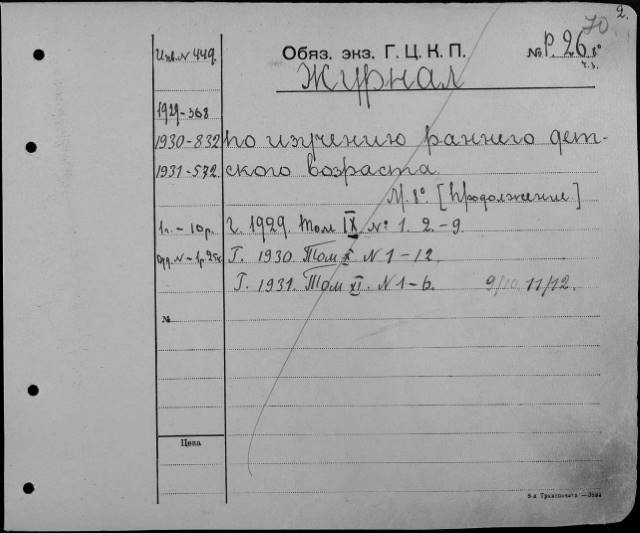 2.
70
Инв. N 449.
Обяз. экз. Г. Ц. К. П.
№ Р. 26 8°
ч. з.
Журнал
1929-368
1930-832 по изучению раннего дет-
1931-572 ского возраста.
М. 8°. [продолжение]
1 г. - 10 р. Г. 1929. Том IX № 1. 2.-9.
отд. N - 1 р. 25 к. Г. 1930. Том X N 1-12.
Г. 1931. Том XI. N 1-6. 9/10, 11/12.
№
Цена